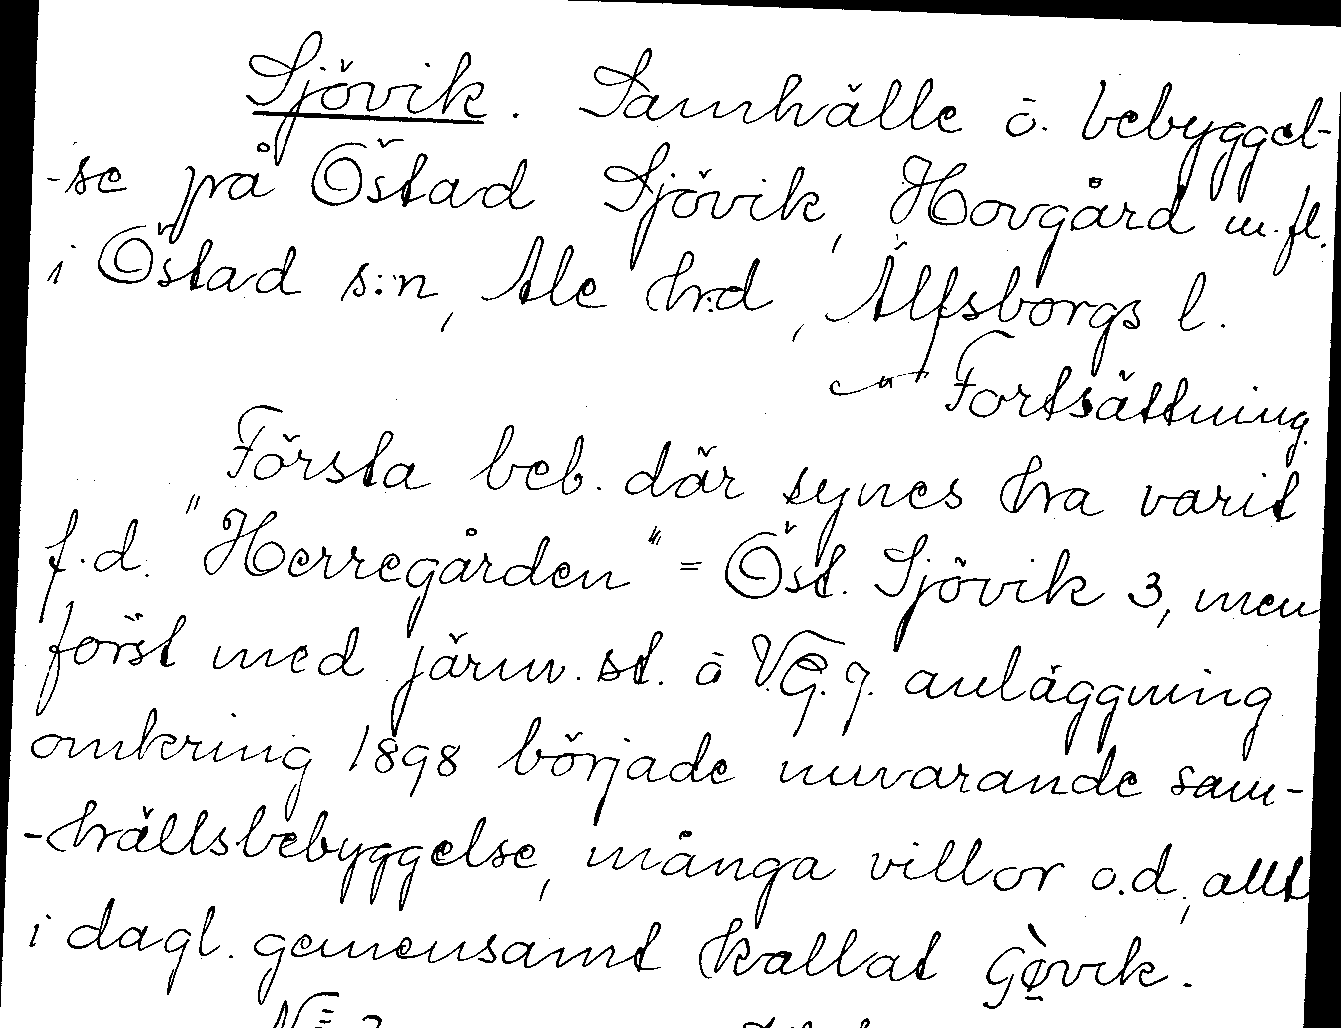 Sjövik. Samhälle o. bebyggel-
-se på Östad Sjövik, Hovgård m.fl.
i Östad s:n, Ale h:d, Älfsborgs l.
Fortsättning.
Första beb. där synes ha varit
f.d. "Herregården" = Öst. Sjövik 3, men
först med järnv. st. o V.G.J. anläggning
omkring 1898 började nuvarande sam-
-hällsbebyggelse, många villor o.d., allt
i dagl. gemensamt kallat